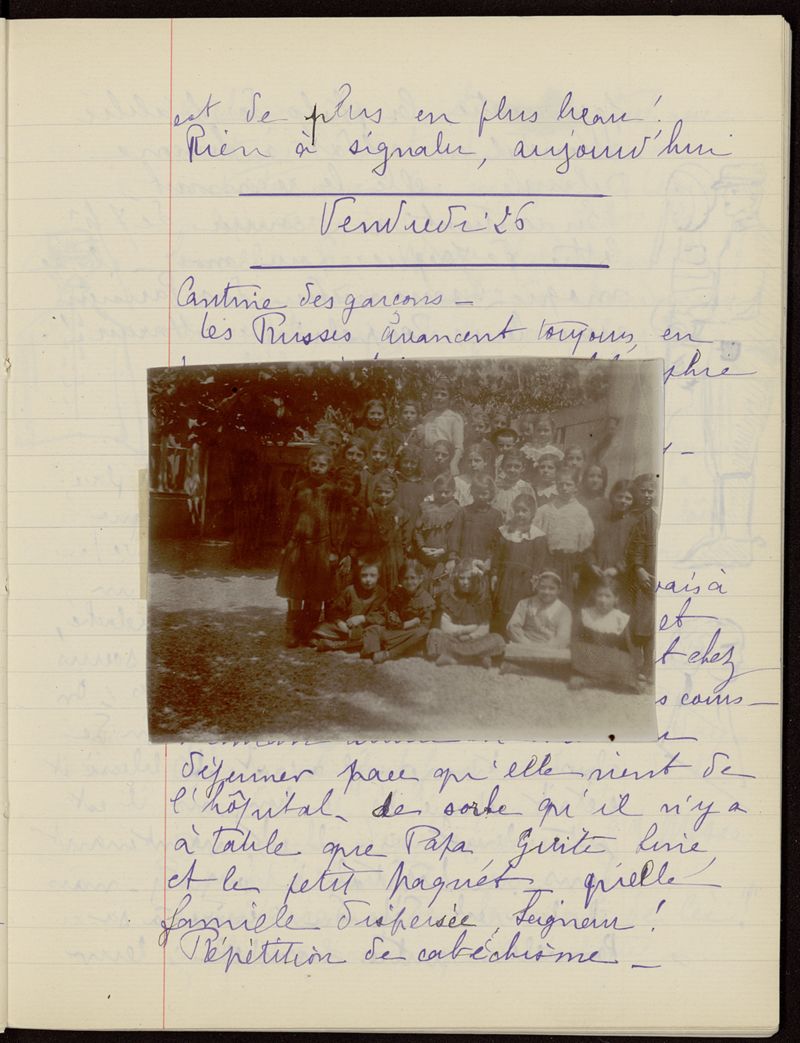 est de plus en plus beau!
Rien à signaler, aujourd'hui
Vendredi 26
Cantine des garçons —
Les Russes avancent toujours, en
phrie
vais à
et
t chez
s cours —
déjeuner parce qu'elle vient de
l'hôpital — de sorte qu'il n'y a
à table que Papa Guite Livie
et le petit paquet — quelle
famiele dispersée, Seigneur!
Répétition de catéchisme —